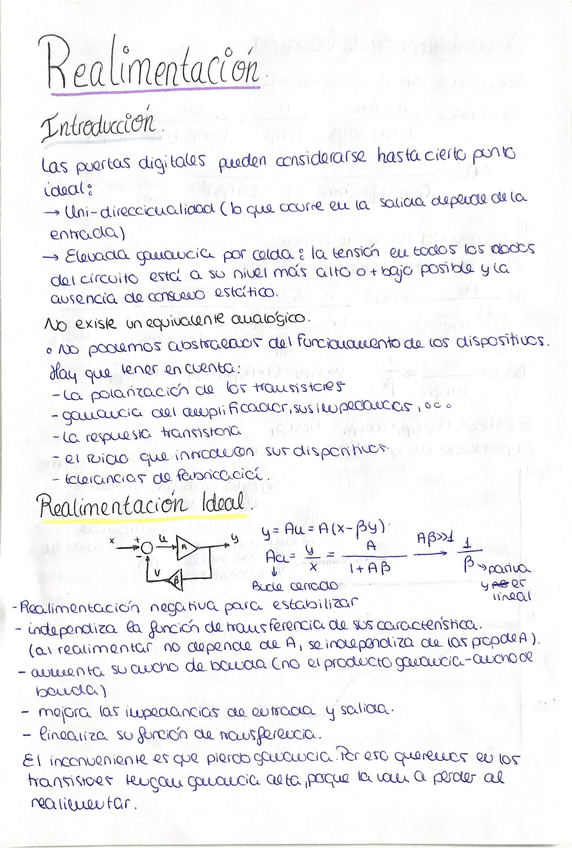 Realimentación.
Introducción.
Las puertas digitales pueden considerarse hasta cierto punto
ideal:
→ Uni-direccionalidad (lo que ocurre en la salida depende de la
entrada)
→ Elevada ganancia por celda: la tensión en todos los nodos
del circuito está a su nivel más alto o + bajo posible y la
ausencia de consumo estático.
No existe un equivalente analógico.
∘ No podemos abstraernos del funcionamiento de los dispositivos.
Hay que tener en cuenta:
- La polarización de los transistores
- ganancia del amplificador, sus impedancias, ...
- La respuesta transitoria
- el ruido que introducen sus dispositivos.
- tolerancias de fabricación.
Realimentación Ideal.
x + u A y
v β
y = Au = A(x - βy)
Aa = y/x = A/(1 + Aβ) → Aβ>>1 1/β → pasiva
y es lineal
Bucle cerrado
- Realimentación negativa para estabilizar
- independiza la función de transferencia de sus característica.
(al realimentar no depende de A, se independiza de las prop de A).
- aumenta su ancho de banda (no el producto ganancia-ancho de
banda)
- mejora las impedancias de entrada y salida.
- linealiza su función de transferencia.
El inconveniente es que pierdo ganancia. Por eso queremos en los
transistores tengan ganancia alta, porque la van a perder al
realimentar.